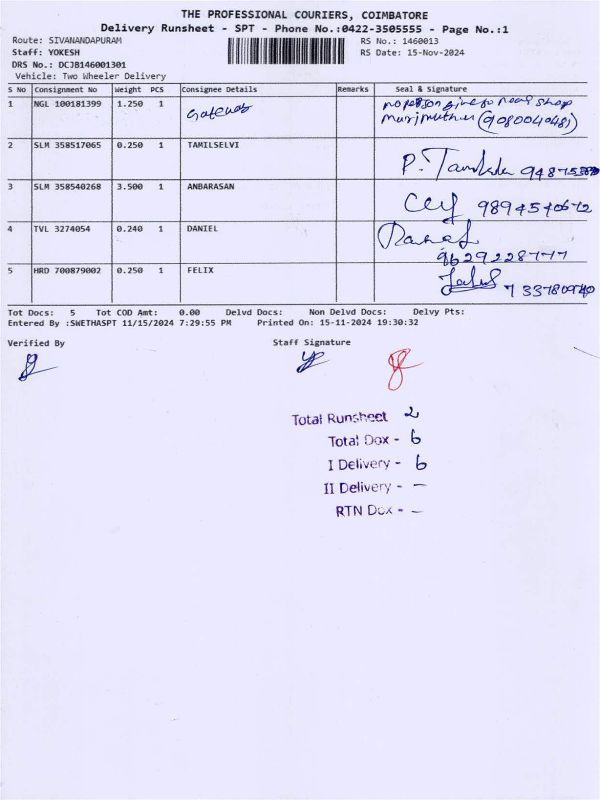 THE PROFESSIONAL COURIERS, COIMBATORE
Delivery Runsheet - SPT - Phone No.:0422-3505555 - Page No.:1
Route: SIVANANDAPURAM RS No.: 1460013
Staff: YOKESH RS Date: 15-Nov-2024
DRS No.: DCJB146001301
Vehicle: Two Wheeler Delivery
S No Consignment No Weight PCS Consignee Details Remarks Seal & Signature
1 NGL 100181399 1.250 1 Gateway no person give to near shop
marimuthu (9080040481)
2 SLM 358517065 0.250 1 TAMILSELVI
3 SLM 358540268 3.500 1 ANBARASAN 9894540672
4 TVL 3274054 0.240 1 DANIEL
9629228777
5 HRD 700879002 0.250 1 FELIX
Tot Docs: 5 Tot COD Amt: 0.00 Delvd Docs: Non Delvd Docs: Delvy Pts:
Entered By :SWETHASPT 11/15/2024 7:29:55 PM Printed On: 15-11-2024 19:30:32
Verified By Staff Signature
Total Runsheet 2
Total Dox - 6
I Delivery - 6
II Delivery - -
RTN Dox - -